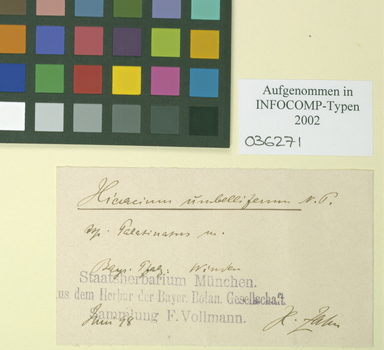 Aufgenommen in
INFOCOMP-Typen
2002
036271
Hieracium umbelliferum N. P.
ssp. Palatinatus m.
Bayr. Pfalz: Winden
Staatsherbarium München.
aus dem Herbar der Bayer. Botan. Gesellschaft
Sammlung F. Vollmann.
Juni 98
K. Zahn